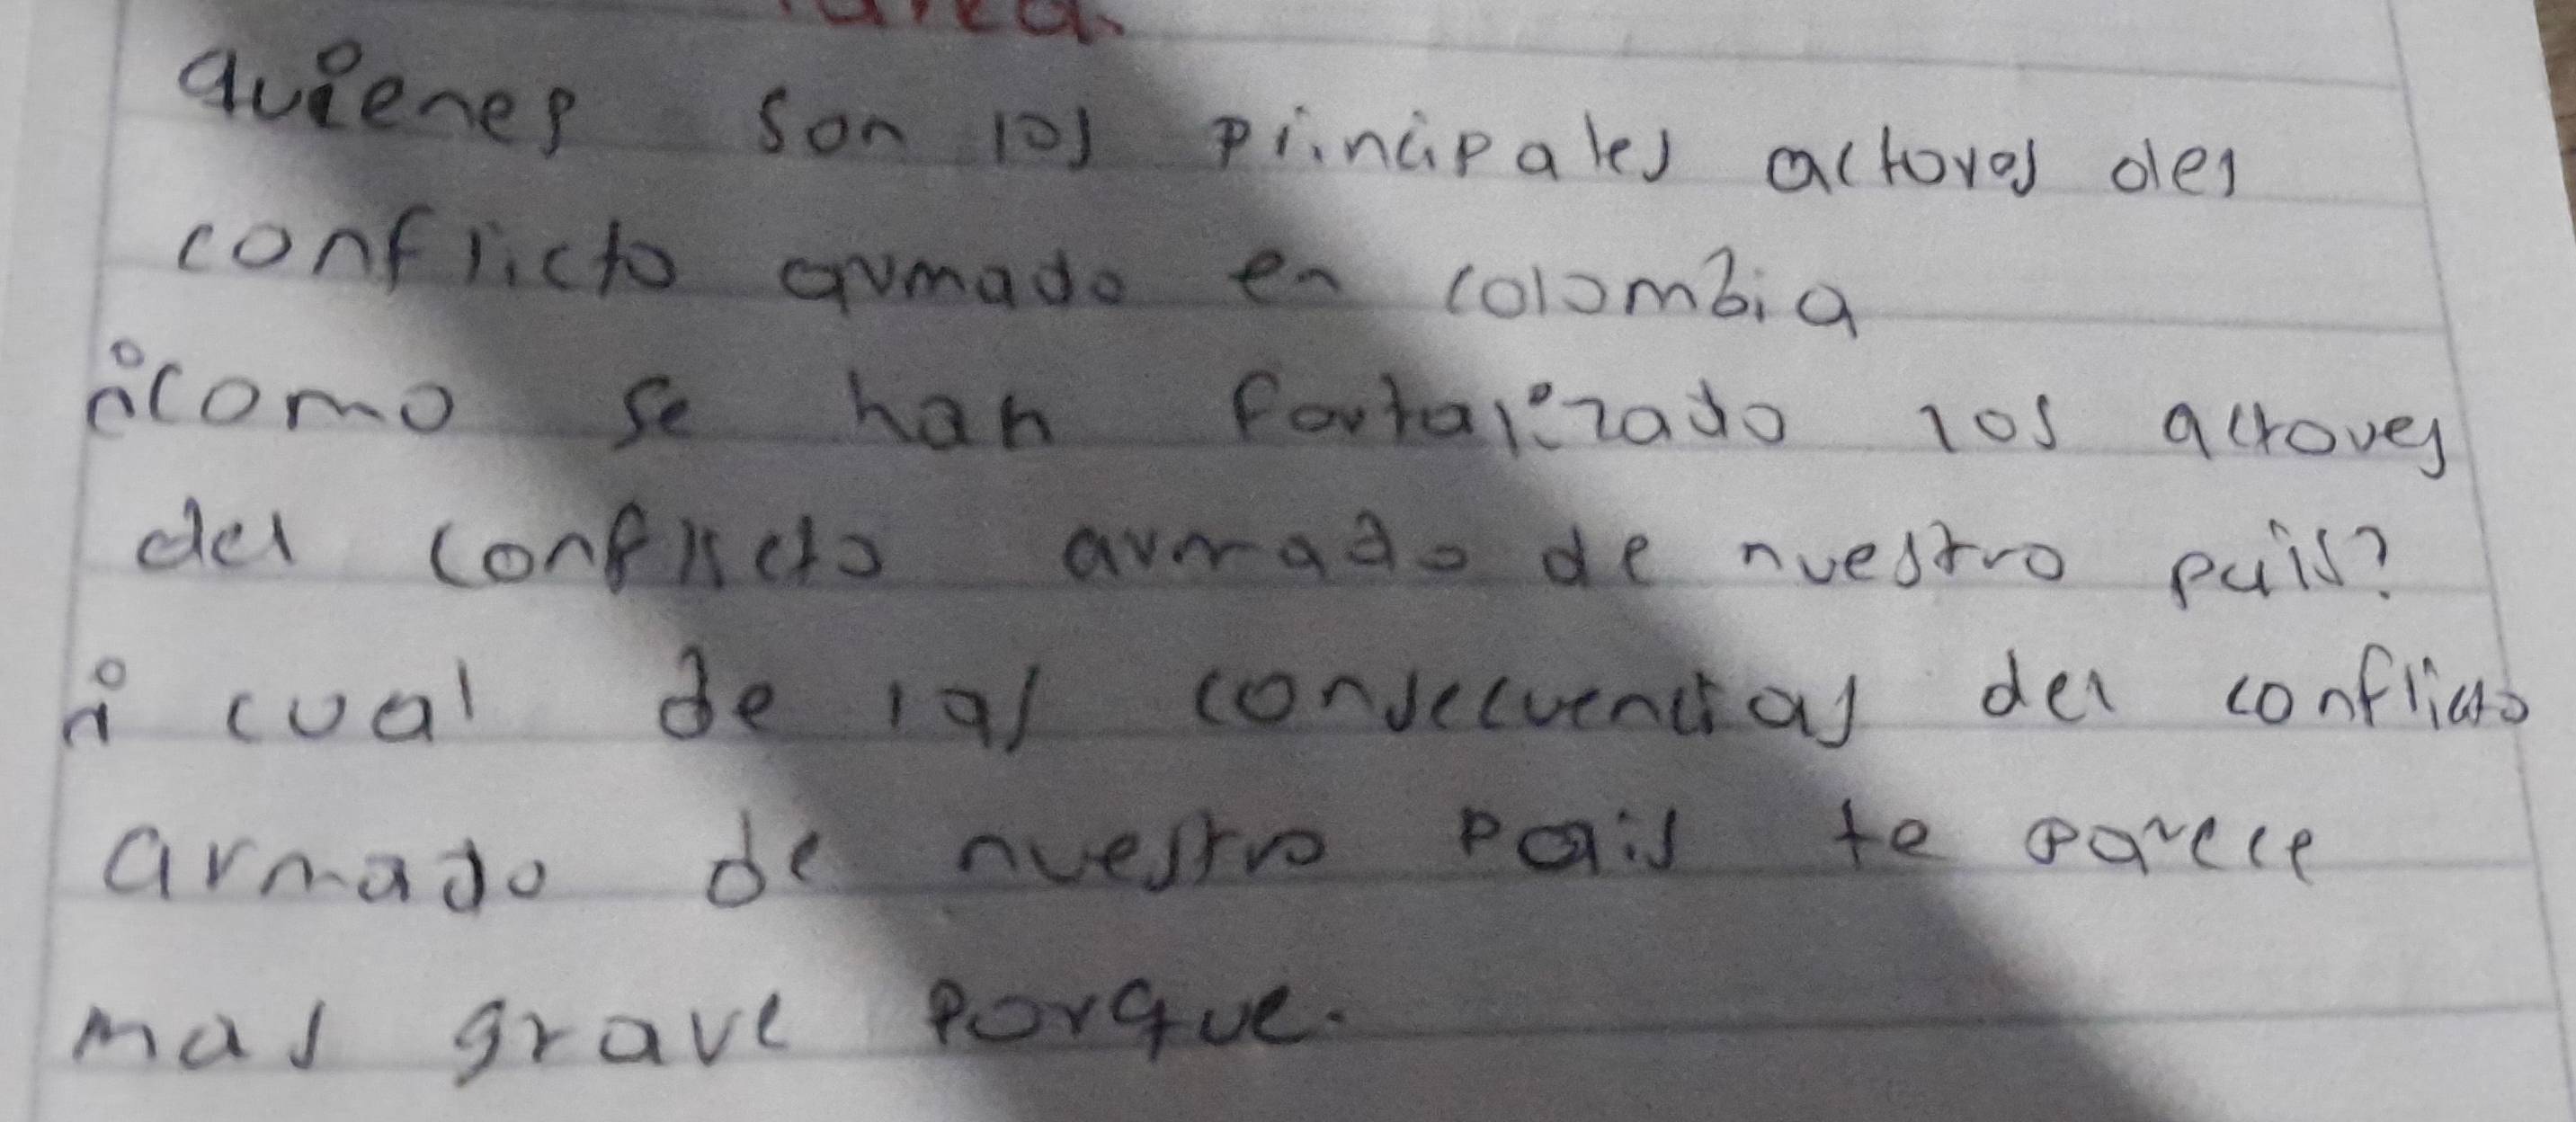 tarea.
quienes son los principales actores del
conflicto armado en colombia
¿como se han fortalezado los actores
del conflicto armado de nuestro pais?
¿ cual de las consecuencias del conflicto
armado de nuestro pais te parece
mas grave porque.